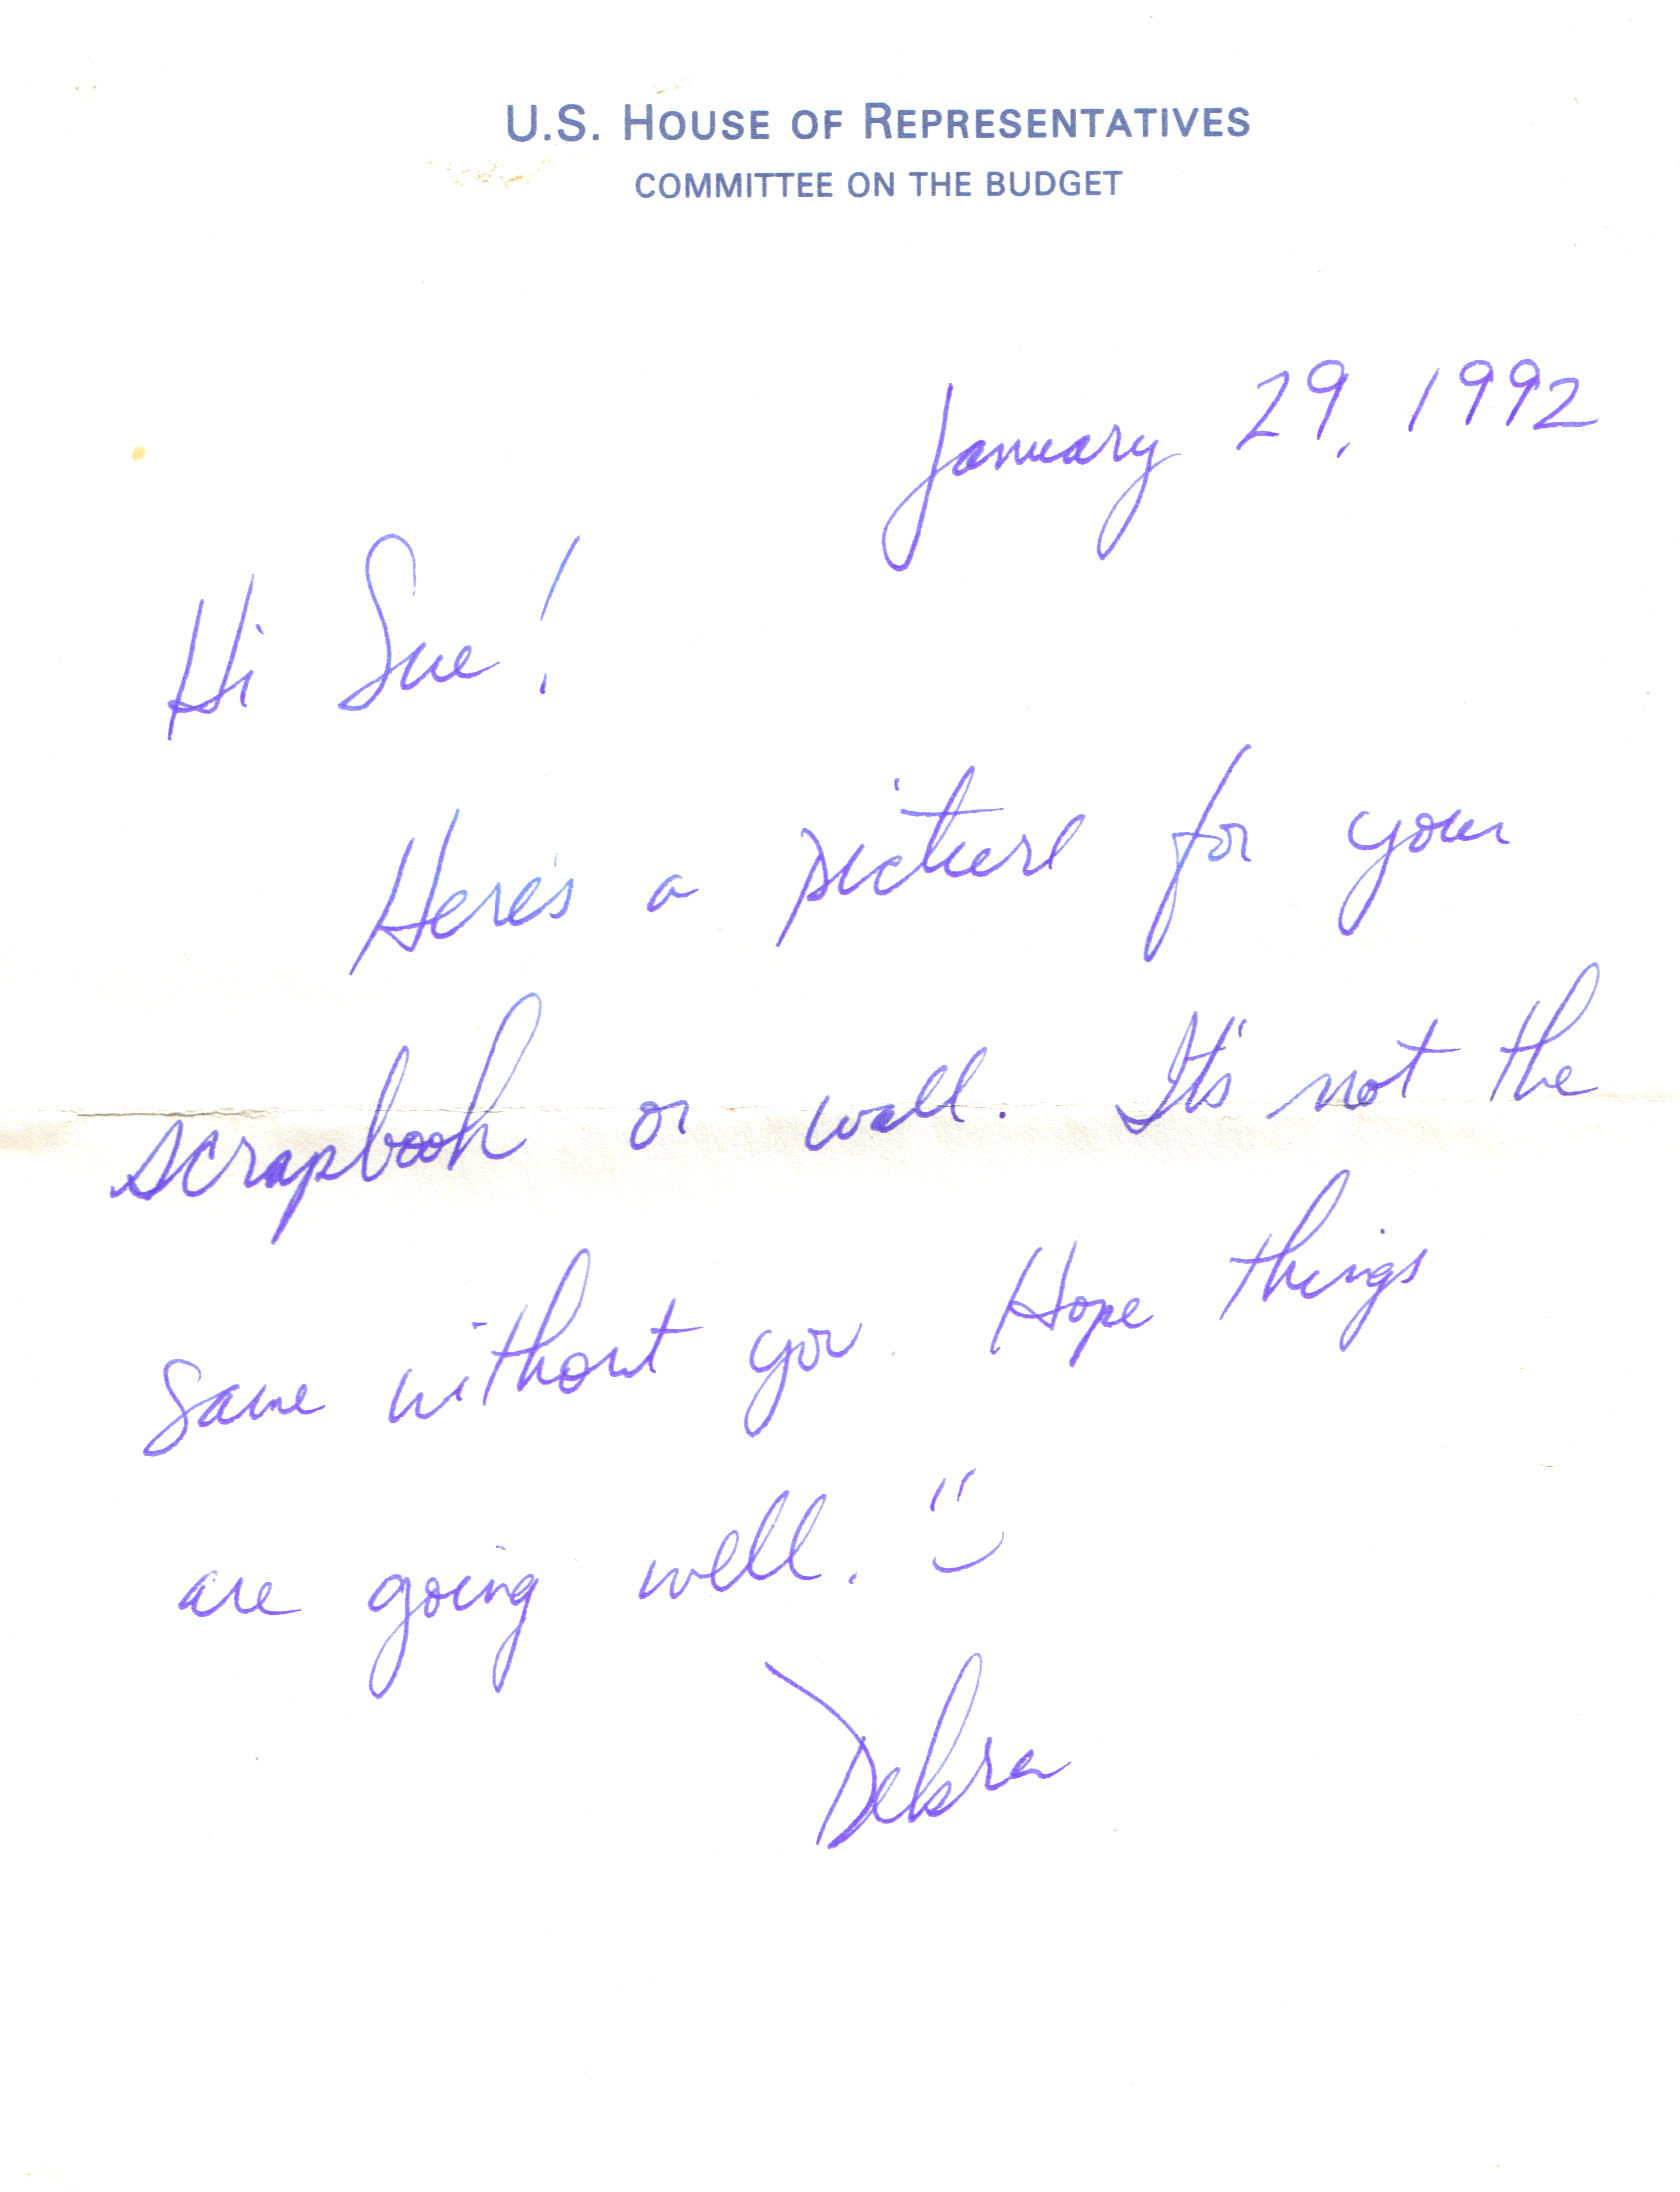 U.S. HOUSE OF REPRESENTATIVES
COMMITTEE ON THE BUDGET
January 29, 1992
Hi Sue!
Here's a picture for your
scrapbook or wall. It's not the
same without you. Hope things
are going well. :)
Debra